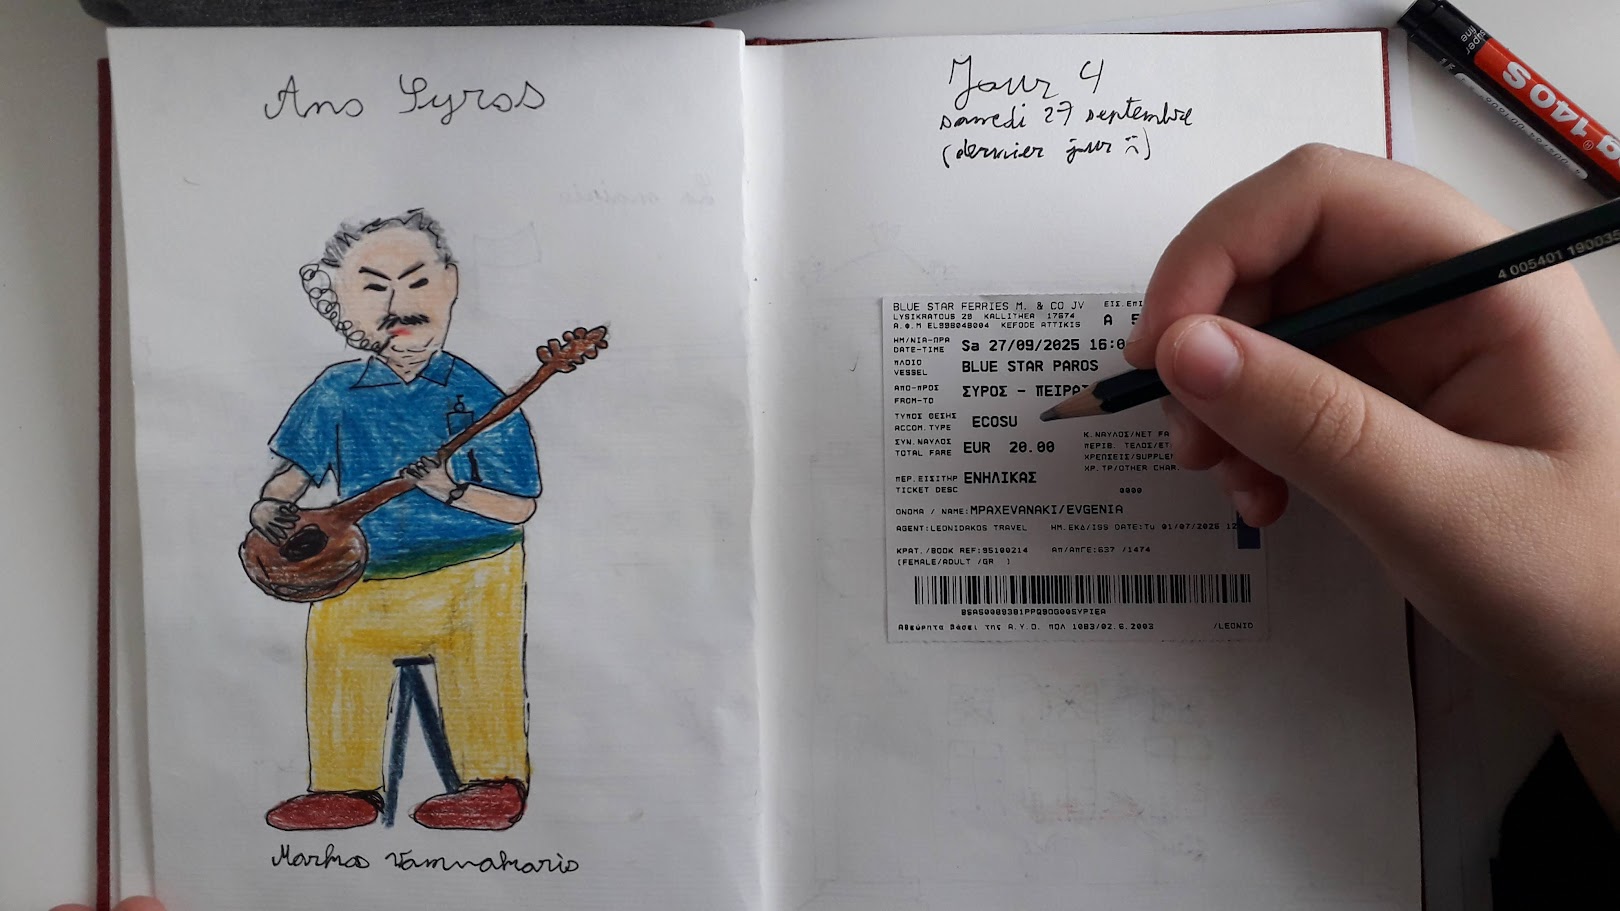 Ano Syros
Markos Vamvakaris
Jour 4
samedi 27 septembre
(dernier jour :()
BLUE STAR FERRIES M. & CO JV ΕΙΣ.ΕΠΙ
LYSIKRATOUS 20 KALLITHEA 17674
Α.Φ.Μ EL998048004 KEFODE ATTIKIS A 5
ΗΜ/ΝΙΑ-ΩΡΑ
DATE-TIME Sa 27/09/2025 16:0
ΠΛΟΙΟ
VESSEL BLUE STAR PAROS
ΑΠΟ-ΠΡΟΣ
FROM-TO ΣΥΡΟΣ - ΠΕΙΡΑ
ΤΥΠΟΣ ΘΕΣΗΣ
ACCOM.TYPE ECOSU
ΣΥΝ.ΝΑΥΛΟΣ
TOTAL FARE EUR 20.00
Κ.ΝΑΥΛΟΣ/NET FA
ΠΕΡΙΒ. ΤΕΛΟΣ/ET
ΧΡΕΩΣΕΙΣ/SUPPLE
ΧΡ.ΤΡ/OTHER CHAR.
ΠΕΡ.ΕΙΣΙΤΗΡ
TICKET DESC ΕΝΗΛΙΚΑΣ
0000
ΟΝΟΜΑ / NAME:ΜΡΑΧΕVANAKI/EVGENIA
AGENT:LEONIDAKOS TRAVEL ΗΜ.ΕΚΔ/ISS DATE:Tu 01/07/2025 12
ΚΡΑΤ./BOOK REF:95100214 ΑΠ/ΑΠΓΕ:637 /1474
(FEMALE/ADULT /GR )
Θεωρητα βάσει της Α.Υ.Ο. ΠΟΛ 1083/02.6.2003 /LEONID
super fine
140 S
4 005401 190035